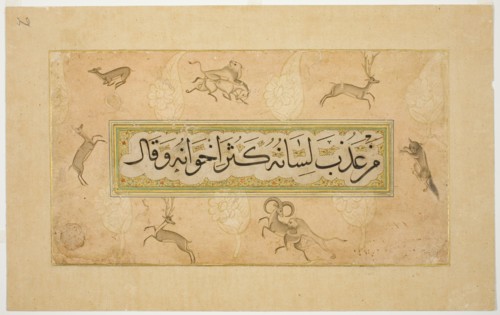 2
مَنْ عَذُبَ لِسَانُهُ كَثُرَ اِخْوَانُهُ وَقَالَ